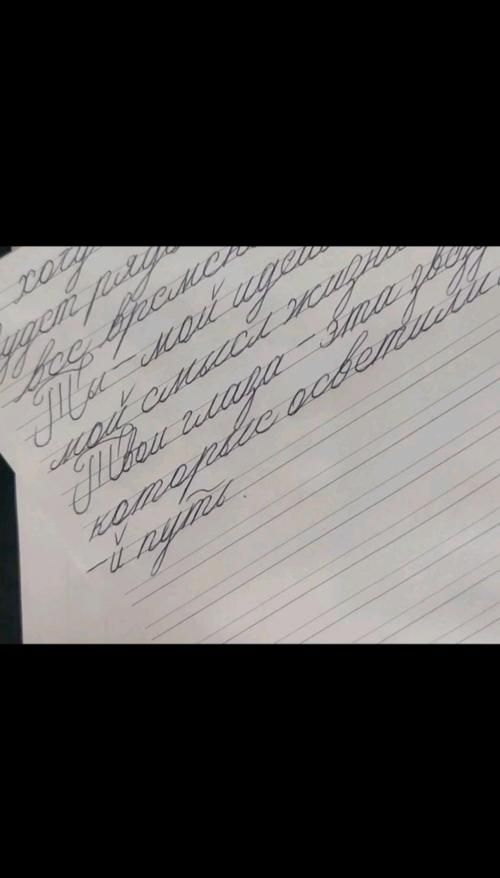 хочу
будет рядо
все времен
Ты - мой идеа
мой смысл жизни
Твои глаза - эта звезд
которые осветили
-й путь.